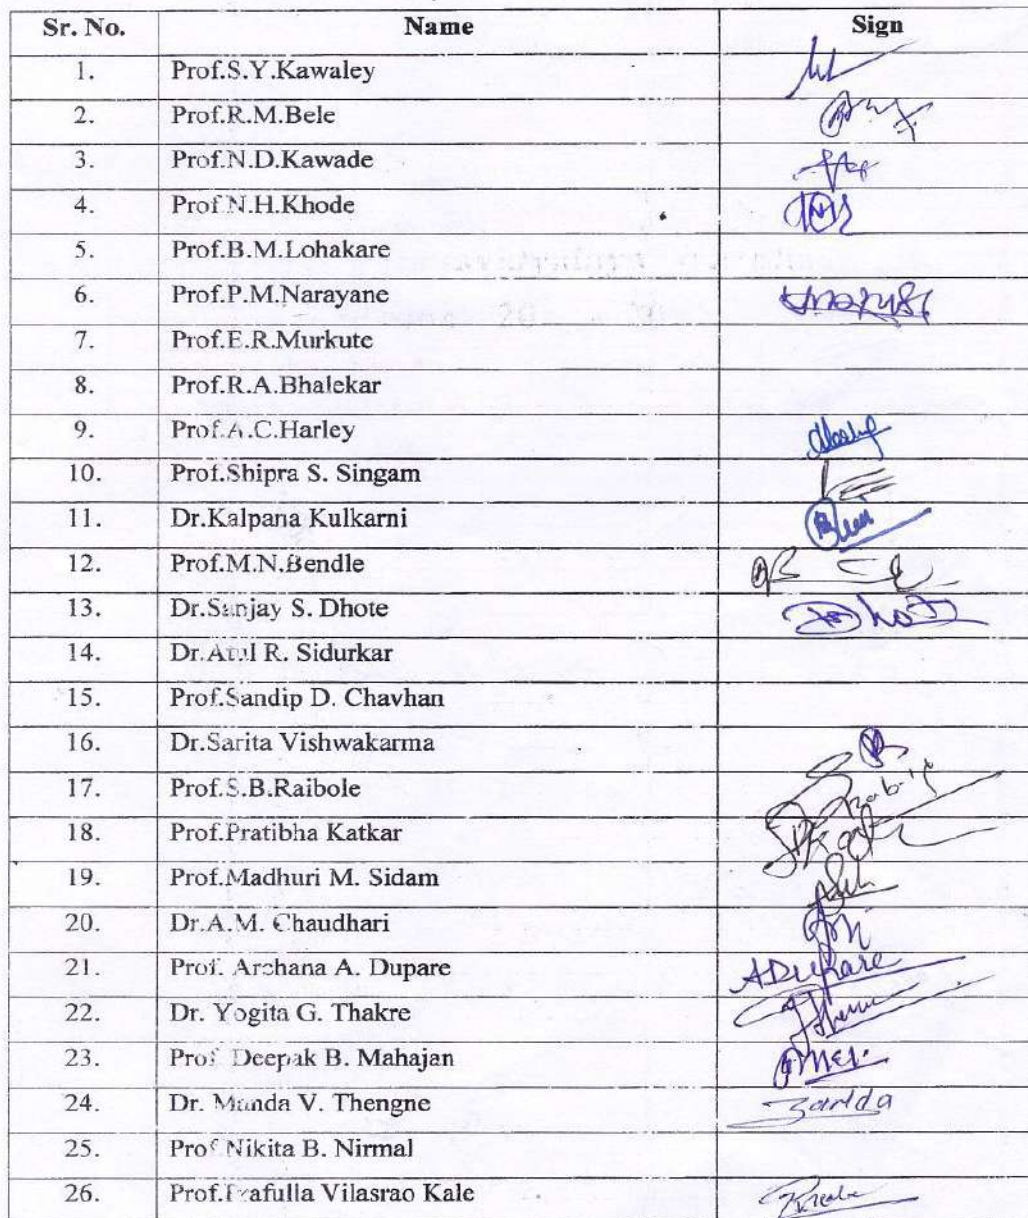 Sr. No. Name Sign
1. Prof.S.Y.Kawaley
2. Prof.R.M.Bele
3. Prof.N.D.Kawade
4. Prof.N.H.Khode
5. Prof.B.M.Lohakare
6. Prof.P.M.Narayane
7. Prof.E.R.Murkute
8. Prof.R.A.Bhalekar
9. Prof.A.C.Harley
10. Prof.Shipra S. Singam
11. Dr.Kalpana Kulkarni
12. Prof.M.N.Bendle
13. Dr.Sanjay S. Dhote
14. Dr.Atul R. Sidurkar
15. Prof.Sandip D. Chavhan
16. Dr.Sarita Vishwakarma
17. Prof.S.B.Raibole
18. Prof.Pratibha Katkar
19. Prof.Madhuri M. Sidam
20. Dr.A.M. Chaudhari
21. Prof. Archana A. Dupare ADupare
22. Dr. Yogita G. Thakre
23. Prof. Deepak B. Mahajan
24. Dr. Manda V. Thengne
25. Prof.Nikita B. Nirmal
26. Prof.Prafulla Vilasrao Kale